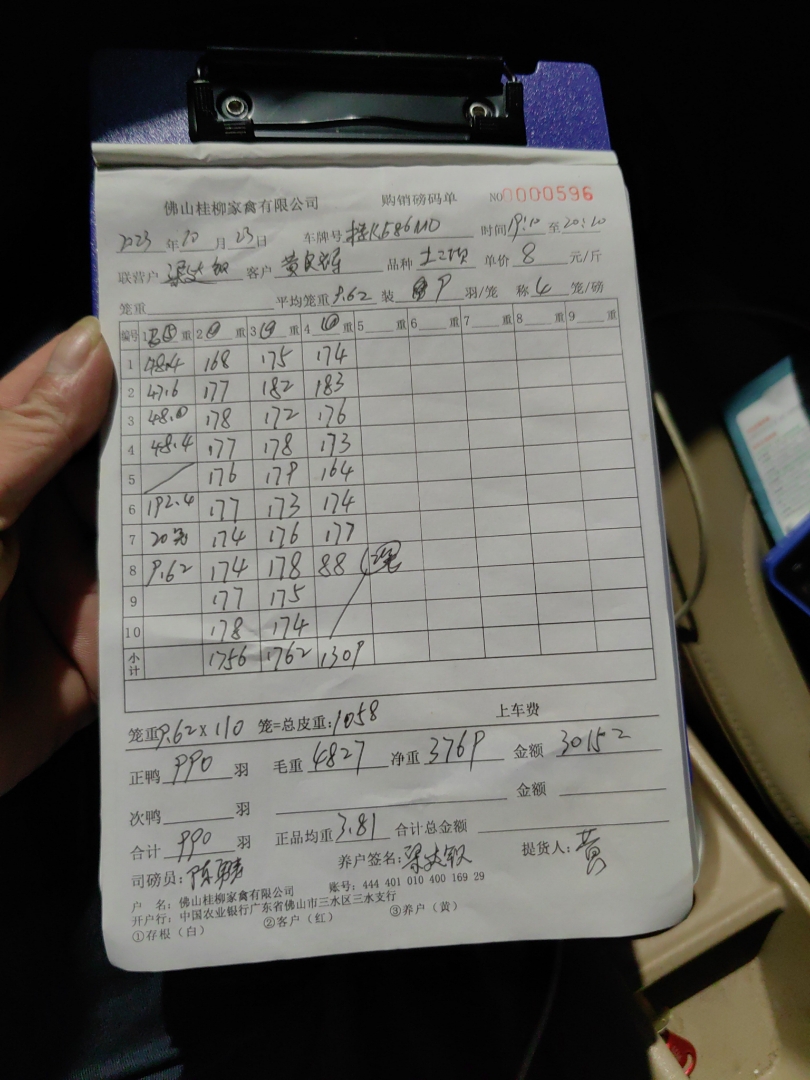 佛山桂柳家禽有限公司 购销磅码单 NO0000596
2023年10月23日 车牌号 桂K586MD 时间19:10至20:10
联营户 客户 品种 土二 单价 8 元/斤
笼重 平均笼重9.62 装 9 羽/笼 称4笼/磅
编号 1 重 2 重 3 重 4 重 5 重 6 重 7 重 8 重 9 重
1 48.4 168 175 174
2 47.6 177 182 183
3 48.0 178 172 176
4 48.4 177 178 173
5 176 179 164
6 192.4 177 173 174
7 20笼 174 176 177
8 9.62 174 178 88 (2笼)
9 177 175
10 178 174
小计 1756 1762 1309
笼重9.62×110 笼=总皮重:1058 上车费
正鸭 990 羽 毛重 4827 净重 3769 金额 30152
次鸭 羽 金额
合计 990 羽 正品均重3.81 合计总金额
司磅员: 养户签名: 提货人:黄
户 名:佛山桂柳家禽有限公司 账号:444 401 010 400 169 29
开户行:中国农业银行广东省佛山市三水区三水支行
①存根(白) ②客户(红) ③养户(黄)